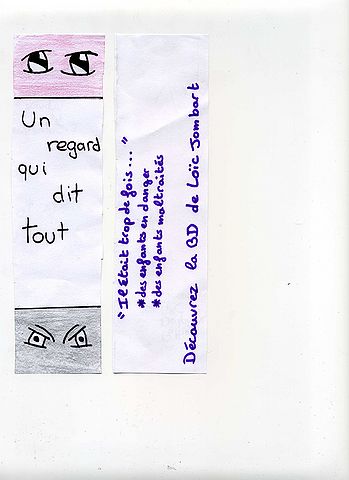 Un
regard
qui
dit
tout
"Il Était trop de fois..."
*des enfants en danger
*des enfants maltraités
Découvrez la BD de Loïc Jombart